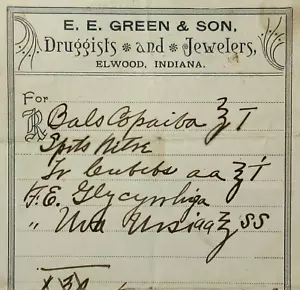 E. E. GREEN & SON,
Druggists and Jewelers,
ELWOOD, INDIANA.
For
R Bals Copaiba ʒ T
Spts Nitre
Tr Cubebs aa ʒ i
F. E. Glycyrrhiza
" Uva Ursi aa ʒ ss